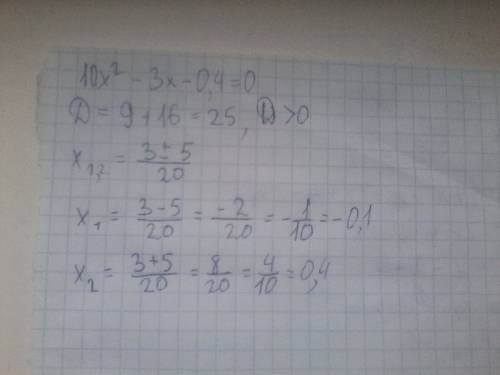 10x² - 3x - 0,4 = 0
D = 9 + 16 = 25, D > 0
x₁,₂ = (3 ± 5)/20
x₁ = (3 - 5)/20 = (-2)/20 = -1/10 = -0,1
x₂ = (3 + 5)/20 = 8/20 = 4/10 = 0,4